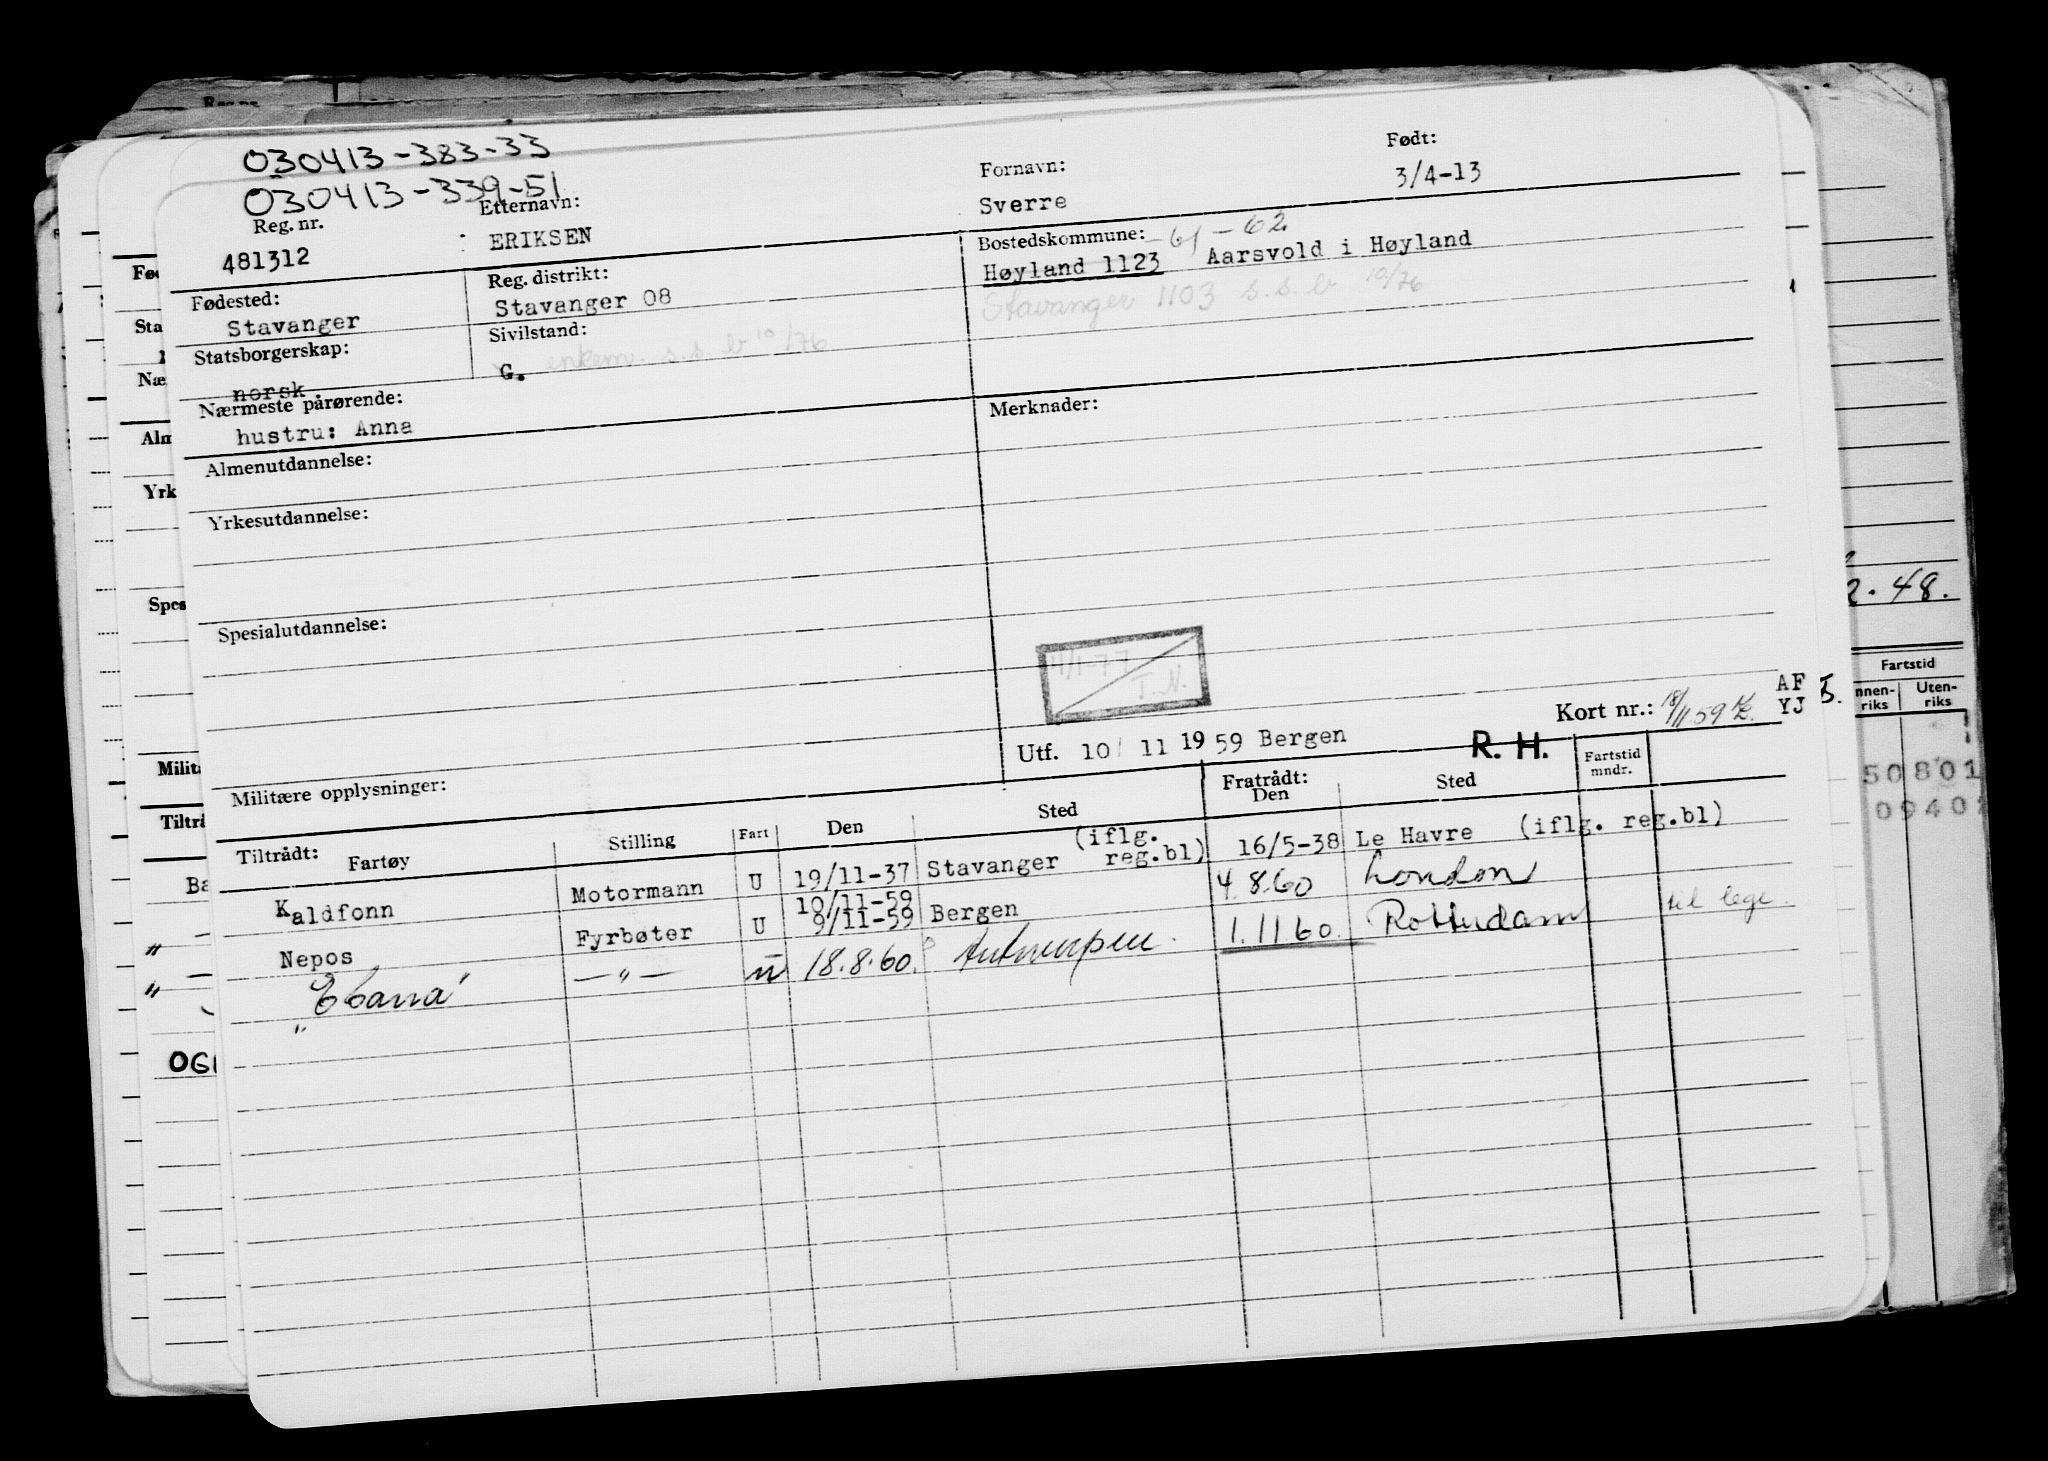 030413-383-33
030413-339-51
Reg. nr. Etternavn: Fornavn: Født:
481312 ERIKSEN Sverre 3/4-13
Fødested: Reg. distrikt: Bostedskommune: -61-62
Stavanger Stavanger 08 Høyland 1123 Aarsvold i Høyland
Stavanger 1103 s.s.b 10/76
Statsborgerskap: Sivilstand:
norsk G. enkem. s.s.b 10/76
Nærmeste pårørende: Merknader:
hustru: Anna
Almenutdannelse:
Yrkesutdannelse:
Spesialutdannelse:
4/1-77
T.N.
Kort nr.: 18/11 59 AF
YJ
Utf. 10/ 11 1959 Bergen R. H.
Militære opplysninger:
Tiltrådt: Fartøy Stilling Fart Den Sted Fratrådt: Den Sted Fartstid mndr.
Kaldfonn Motormann U 19/11-37 Stavanger (iflg. reg.bl) 16/5-38 Le Havre (iflg. reg.bl)
Nepos Fyrbøter U 10/11-59 9/11-59 Bergen 4.8.60 London
" Elarra —"— U 18.8.60. Antwerpen. 1.11 60. Rotterdam til lege.
Fød
Sta
Næ
Alm
Yrk
Spes
Milita
Tiltrå
Ba
OGL
2.48.
Fartstid
nnen-
riks Uten-
riks
50801
09401